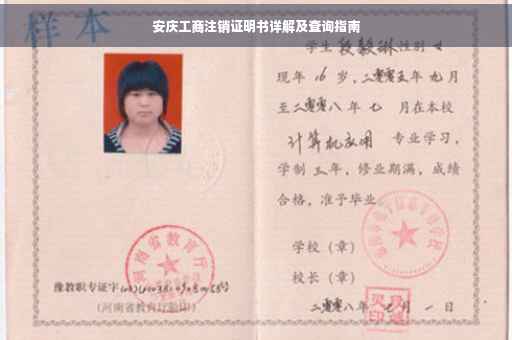 安庆工商注销证明书详解及查询指南
样本
学生 段毅琳 性别 女
现年 16 岁，二零零五年 九 月
至二零零八年 七 月在本校
计算机应用 专业学习，
学制 三 年，修业期满，成绩
合格，准予毕业。
学校（章）
校长（章）
二零零八年 七 月 一 日
河南省教育厅
豫教职专证字
（河南省教育厅验印）